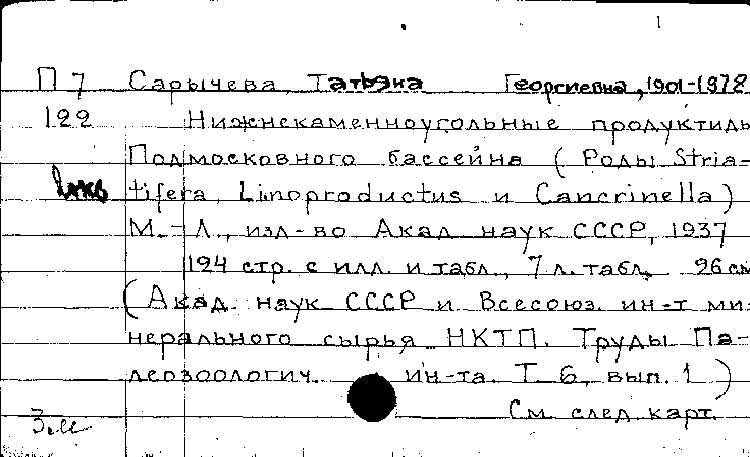 1
П 7 Сарычева, Татьяна Георгиевна, 1901-1978
122 Нижнекаменноугольные продуктиды
Подмосковного бассейна (Роды Stria-
tifera, Linoproductus и Cancrinella)
М.-Л., изд-во Акад. наук СССР, 1937
124 стр. с илл. и табл., 7 л. табл. 26 см
(Акад. наук СССР и Всесоюз. ин-т ми-
нерального сырья НКТП. Труды Па-
леозоологич. ин-та. Т. 6, вып. 1)
См. след. карт.